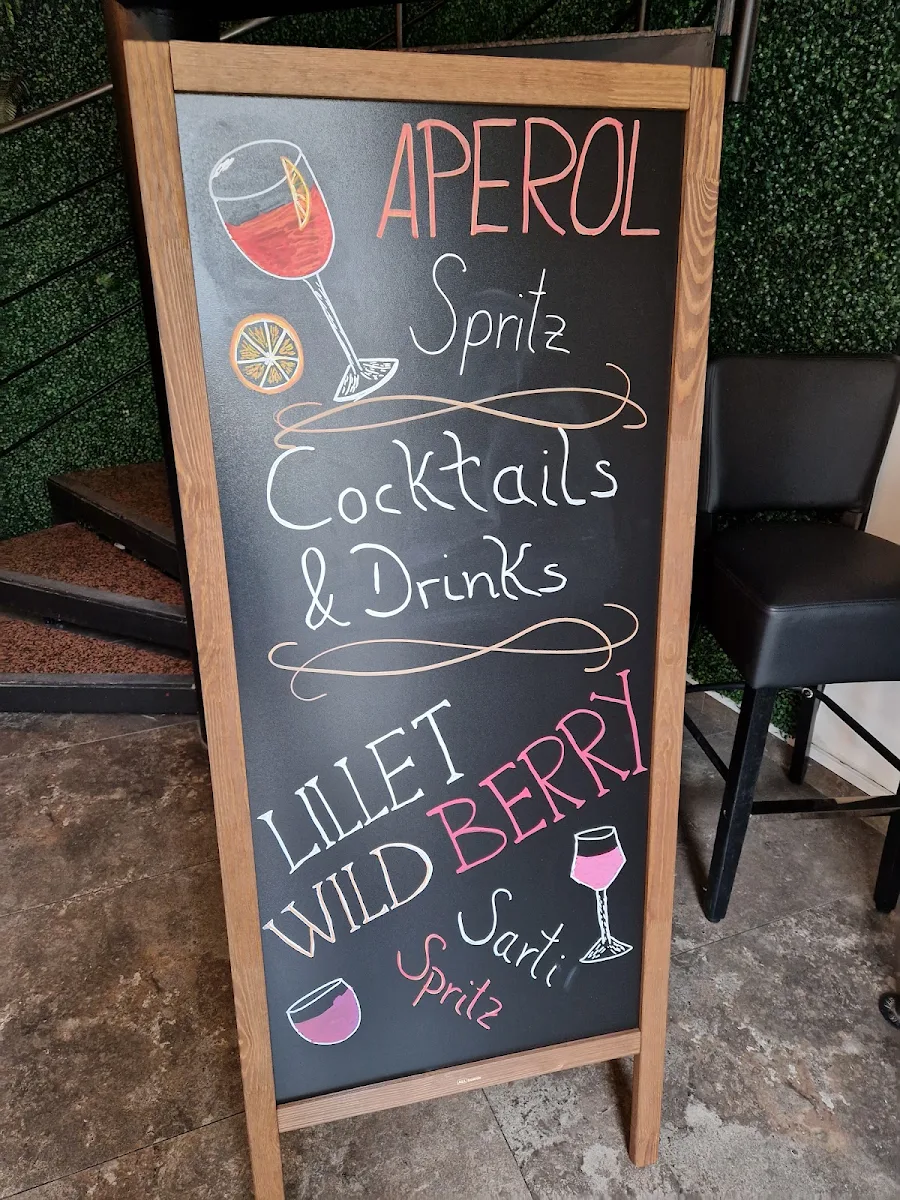 APEROL
Spritz
Cocktails
& Drinks
LILLET
WILD BERRY
Sarti
Spritz